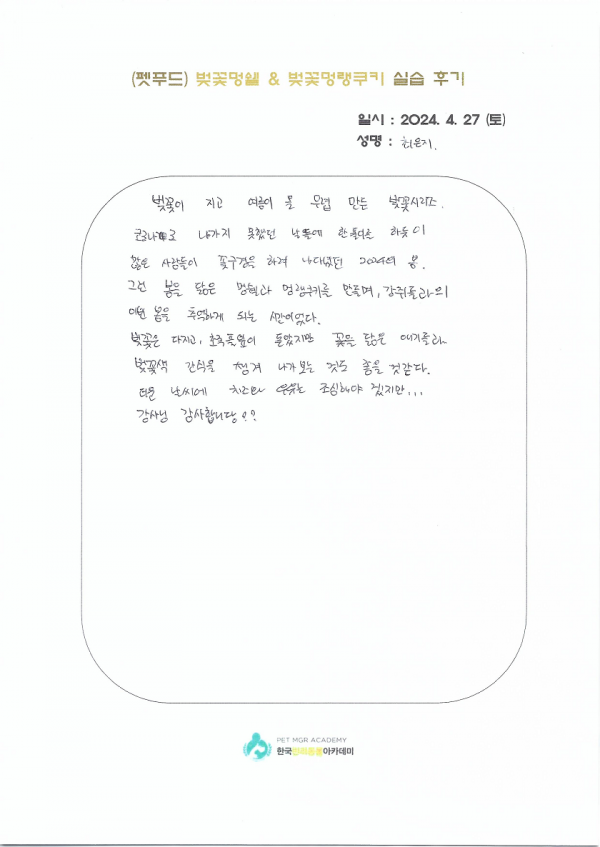 (펫푸드) 벚꽃멍쉘 & 벚꽃멍랭쿠키 실습 후기
일시 : 2024. 4. 27 (토)
성명 : 최윤지.
벚꽃이 지고 여름이 올 무렵 만든 벚꽃시리즈.
코로나로 나가지 못했던 날들에 한풀이를 하듯이
많은 사람들이 꽃구경을 하려 나다녔던 2024의 봄.
그런 봄을 닮은 멍쉘과 멍랭쿠키를 만들며, 강쥐들과의
이번 봄을 추억하게 되는 시간이었다.
벚꽃은 다지고, 초록풀잎이 돋았지만 꽃을 닮은 애기들과
벚꽃색 간식을 챙겨 나가보는 것도 좋을 것같다.
더운 날씨에 치즈와 우유는 조심해야 겠지만...
강사님 감사합니당 ??
PET MGR ACADEMY
한국반려동물아카데미